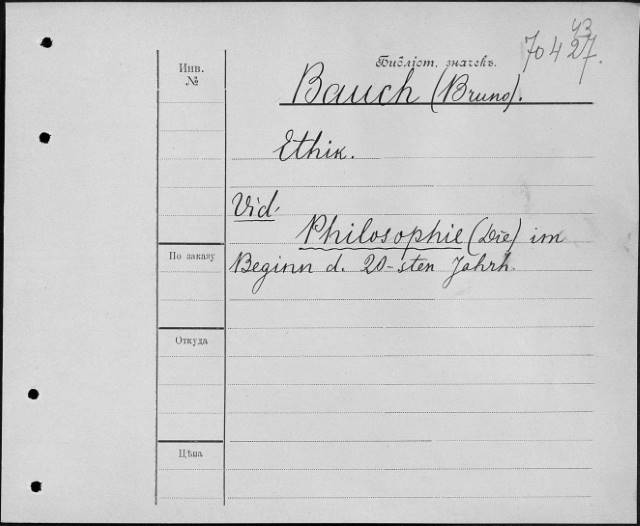 43
70427.
Инв.
№
Библіот. значекъ.
Bauch (Bruno).
Ethik.
Vid.
Philosophie (Die) im
По заказу
Beginn d. 20-sten Jahrh.
Откуда
Цѣна